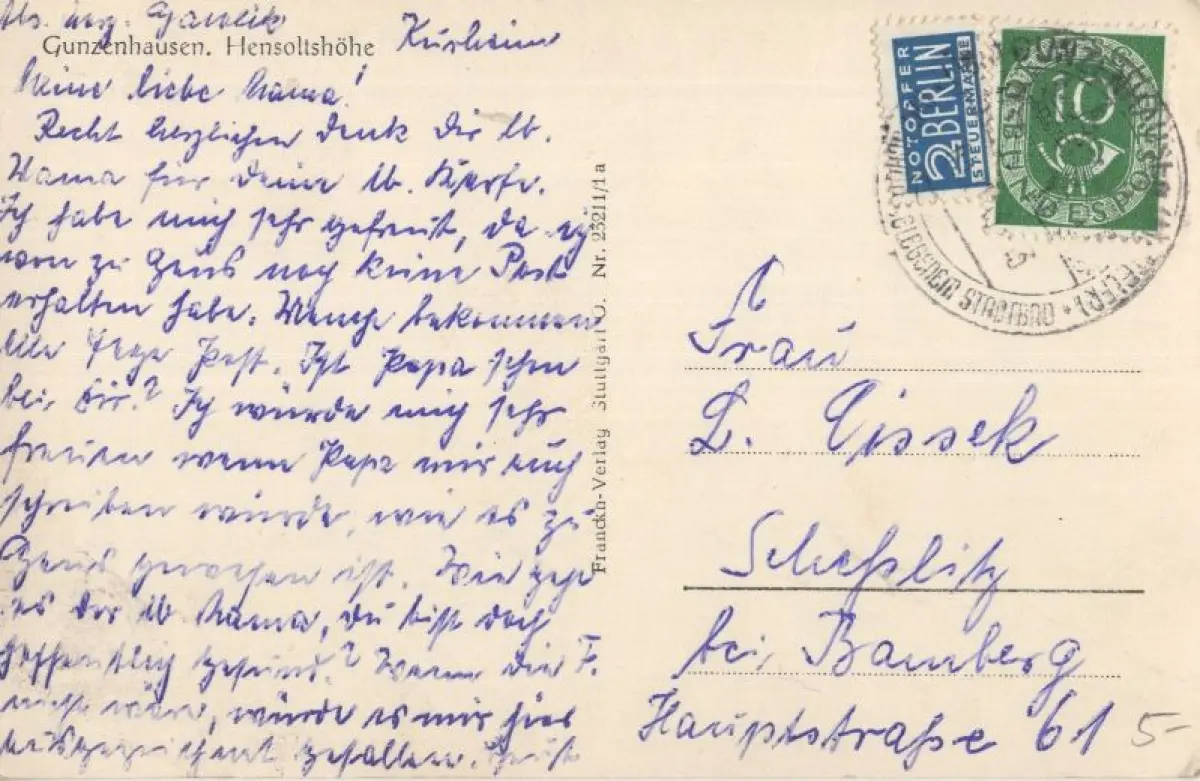 Abs. Ing. Gawlik
Gunzenhausen. Hensoltshöhe
Kurheim
Meine liebe Mama!
Recht herzlichen Dank Dir lb.
Mama für Deine lb. Karte.
Ich habe mich sehr gefreut, da ich
von zu Haus noch keine Post
erhalten habe. Manche bekommen
alle Tage Post. Ist Papa schon
bei Dir? Ich würde mich sehr
freuen wenn Papa mir auch
schreiben würde, wie es zu
Haus gewesen ist. Wie geht
es Dir lb Mama, Du bist doch
hoffentlich gesund? Wenn die F.
nicht wäre, würde es mir hier
ausgezeichnet gefallen.
Franckh-Verlag Stuttgart O. Nr. 23211/1a
NOTOPFER
2 BERLIN
STEUERMARKE
10
BUNDESPOST
STADTBAD
Frau
L. Cissek
Scheßlitz
bei Bamberg
Hauptstraße 61
5-